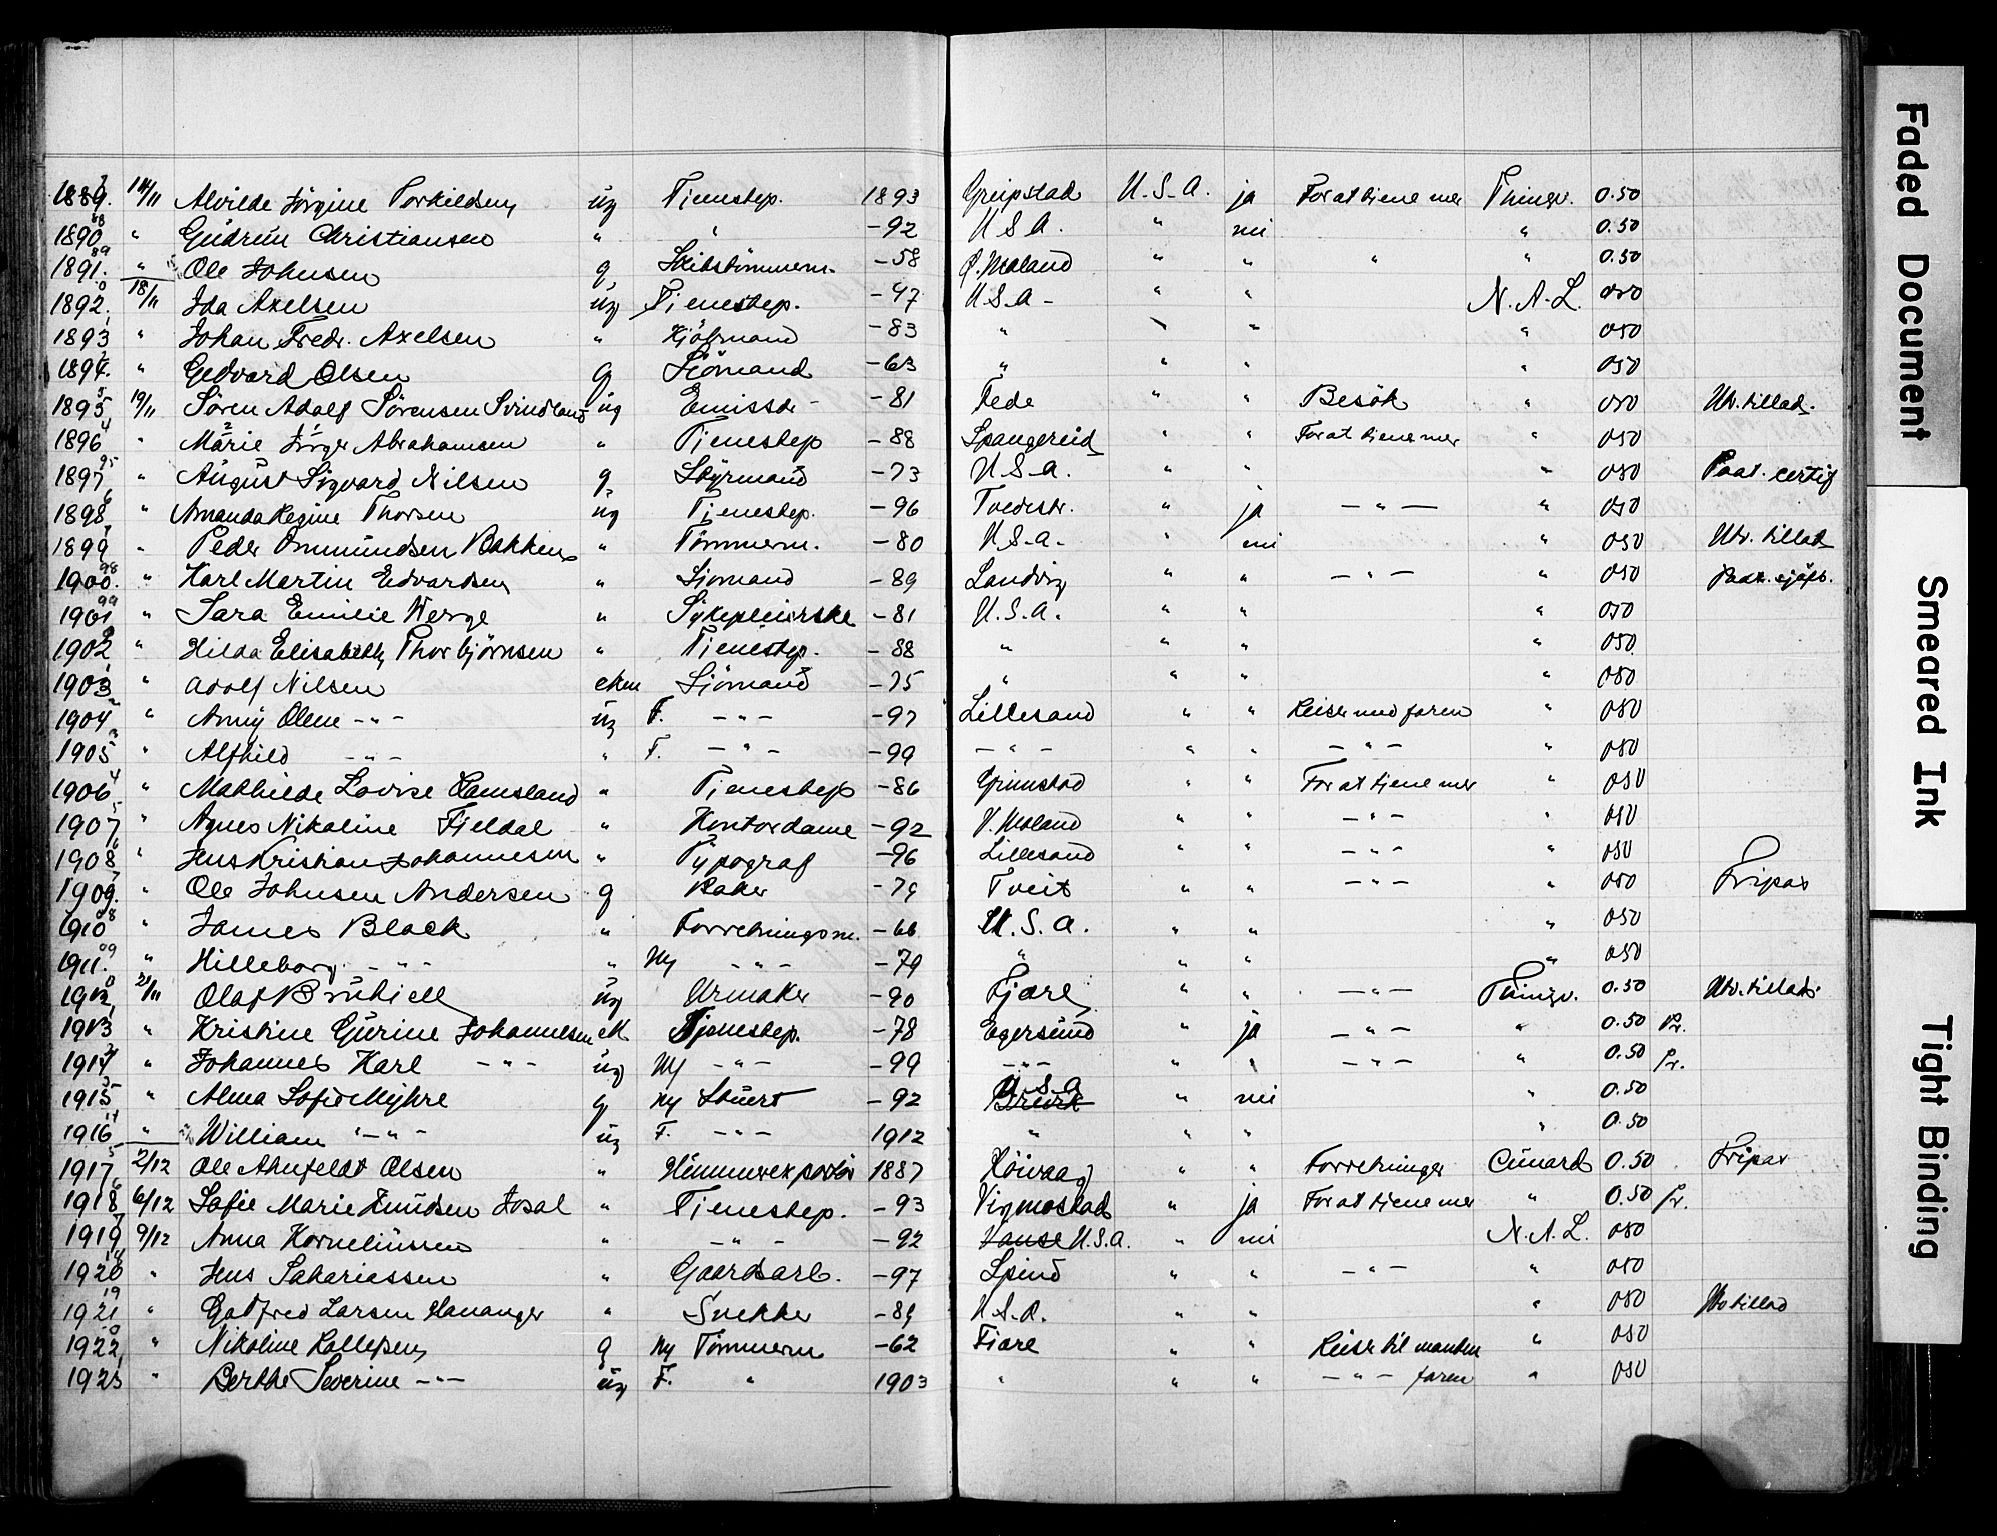 1889. 14/11 Alvilde Jörgine Torkildsen ug Tjenestep. 1893 Greipstad U.S.A. ja For at tjene mer Thingv. 0.50
1890 " Gudrun Christiansen " " -92 U.S.A. " nei " 0.50
1891. " Ole Johnsen g, Skibstömmerm. -58 Ø. Moland " " " " 0.50
1892. 18/11 Ida Axelsen ug Tjenestep. -47 U.S.A- " " N.A.L. 050
1893 " Johan Fredr. Axelsen " Kjöbmand -83 " " " " 050
1894. " Gedvard Olsen g Sjömand -63 " " " " 050
1895 19/11 Sören Adolf Sörensen Svindland ug Emissær -81 Fede " " Besök " 050 Utv. tillad.
1896 " Marie Jörgr Abrahamsen " Tjenestep -88 Spangereid " " For at tjene mer " 050
1897 " August Sigvard Nilsen g, Styrmand -73 U.S.a. " " " 050 Paat. certif
1898 " Amanda Regine Thorsen ug Tjenestep. -96 Tvedestr. " ja - " - " 050
1899 " Peder Ommundsen Bakken " Tömmerm. -80 U.S.a. " nei " 050 Utv. tillad
1900. " Karl Martin Edvardsen " Sjomand -89 Landvig " " - " - " 050 Paat. sjöfb.
1901 " Sara Emilie Werge " Sykepleierske -81 U.S.a. " " " 050
1902 " Hilda Elisabeth Thorbjörnsen " Tjenestep. -88 " " " " 050
1903 " Adolf Nilsen ekm Sjömand -75 " " " " 050
1904 " Anny Olene - " - ug F. - " - -97 Lillesand " " Reiser med faren " 050
1905 " Alfhild - " - " F. - " - -99 - " - " " - " - " 050
1906 " Mathilde Lovise Ramsland " Tjenestep -86 Grimstad " " For at tjene mer " 050
1907 " Agnes Nikoline Fjeldal " Kontordame -92 V. Moland " " - " - " 050
1908 " Jens Kristian Johannesen " Typograf -96 Lillesand " " - " - " 050
1909. " Ole Johnsen Andersen g Baker -79 Tveit " " - " - " 050 Fripas
1910 " James Black " Forretningsm. -66 U.S.A. " " " 050
1911. " Hilleborg - " - " Hy - " - -79 " " " " 050
1912 21/11 Olaf Brubjell ug Urmaker -90 Fjære " " - " - Thingv. 0.50 Utv. tillad.
1913 " Kristine Gurine Johannesen ek Tjenestep. -78 Egersund " ja - " - " 0.50 Pr.
1914 " Johannes Karl - " - ug Hy - " - -99 - " - " " - " - " 0.50 Pr.
1915 " Alma Sofie Myhre g Hy Stuert -92 U.S.a. " nei " 0.50
1916 " William " - " - ug F. - " - 1912 " " " " 0.50
1917 2/12 Ole Ahnfeldt Olsen " Hummerexportör 1887 Höivaag " " Forretninger Cunard 0.50 Fripas
1918 6/12 Sofie Marie Knudsen Josal " Tjenestep. -93 Vigmostad " ja For at tjene mer " 0.50 Pr.
1919 9/12 Anna Korneliussen " - " - -92 Vanse U.S.a. " nei N.A.L. 050
1920 " Jens Sakariassen " Gaardsarb. -97 Spind " " - " - " 050
1921 " Gotfred Larsen Hananger " Snekker -89 U.S.A. " " " 050 Utv tillad
1922 " Nikoline Kallefsen g Hy Tömmerm -62 Fjære " " Reiser til manden " 050
1923 " Berthe Severine - " - ug F. " 1903 " " " - " - faren " 050
Faded Document
Smeared Ink
Tight Binding